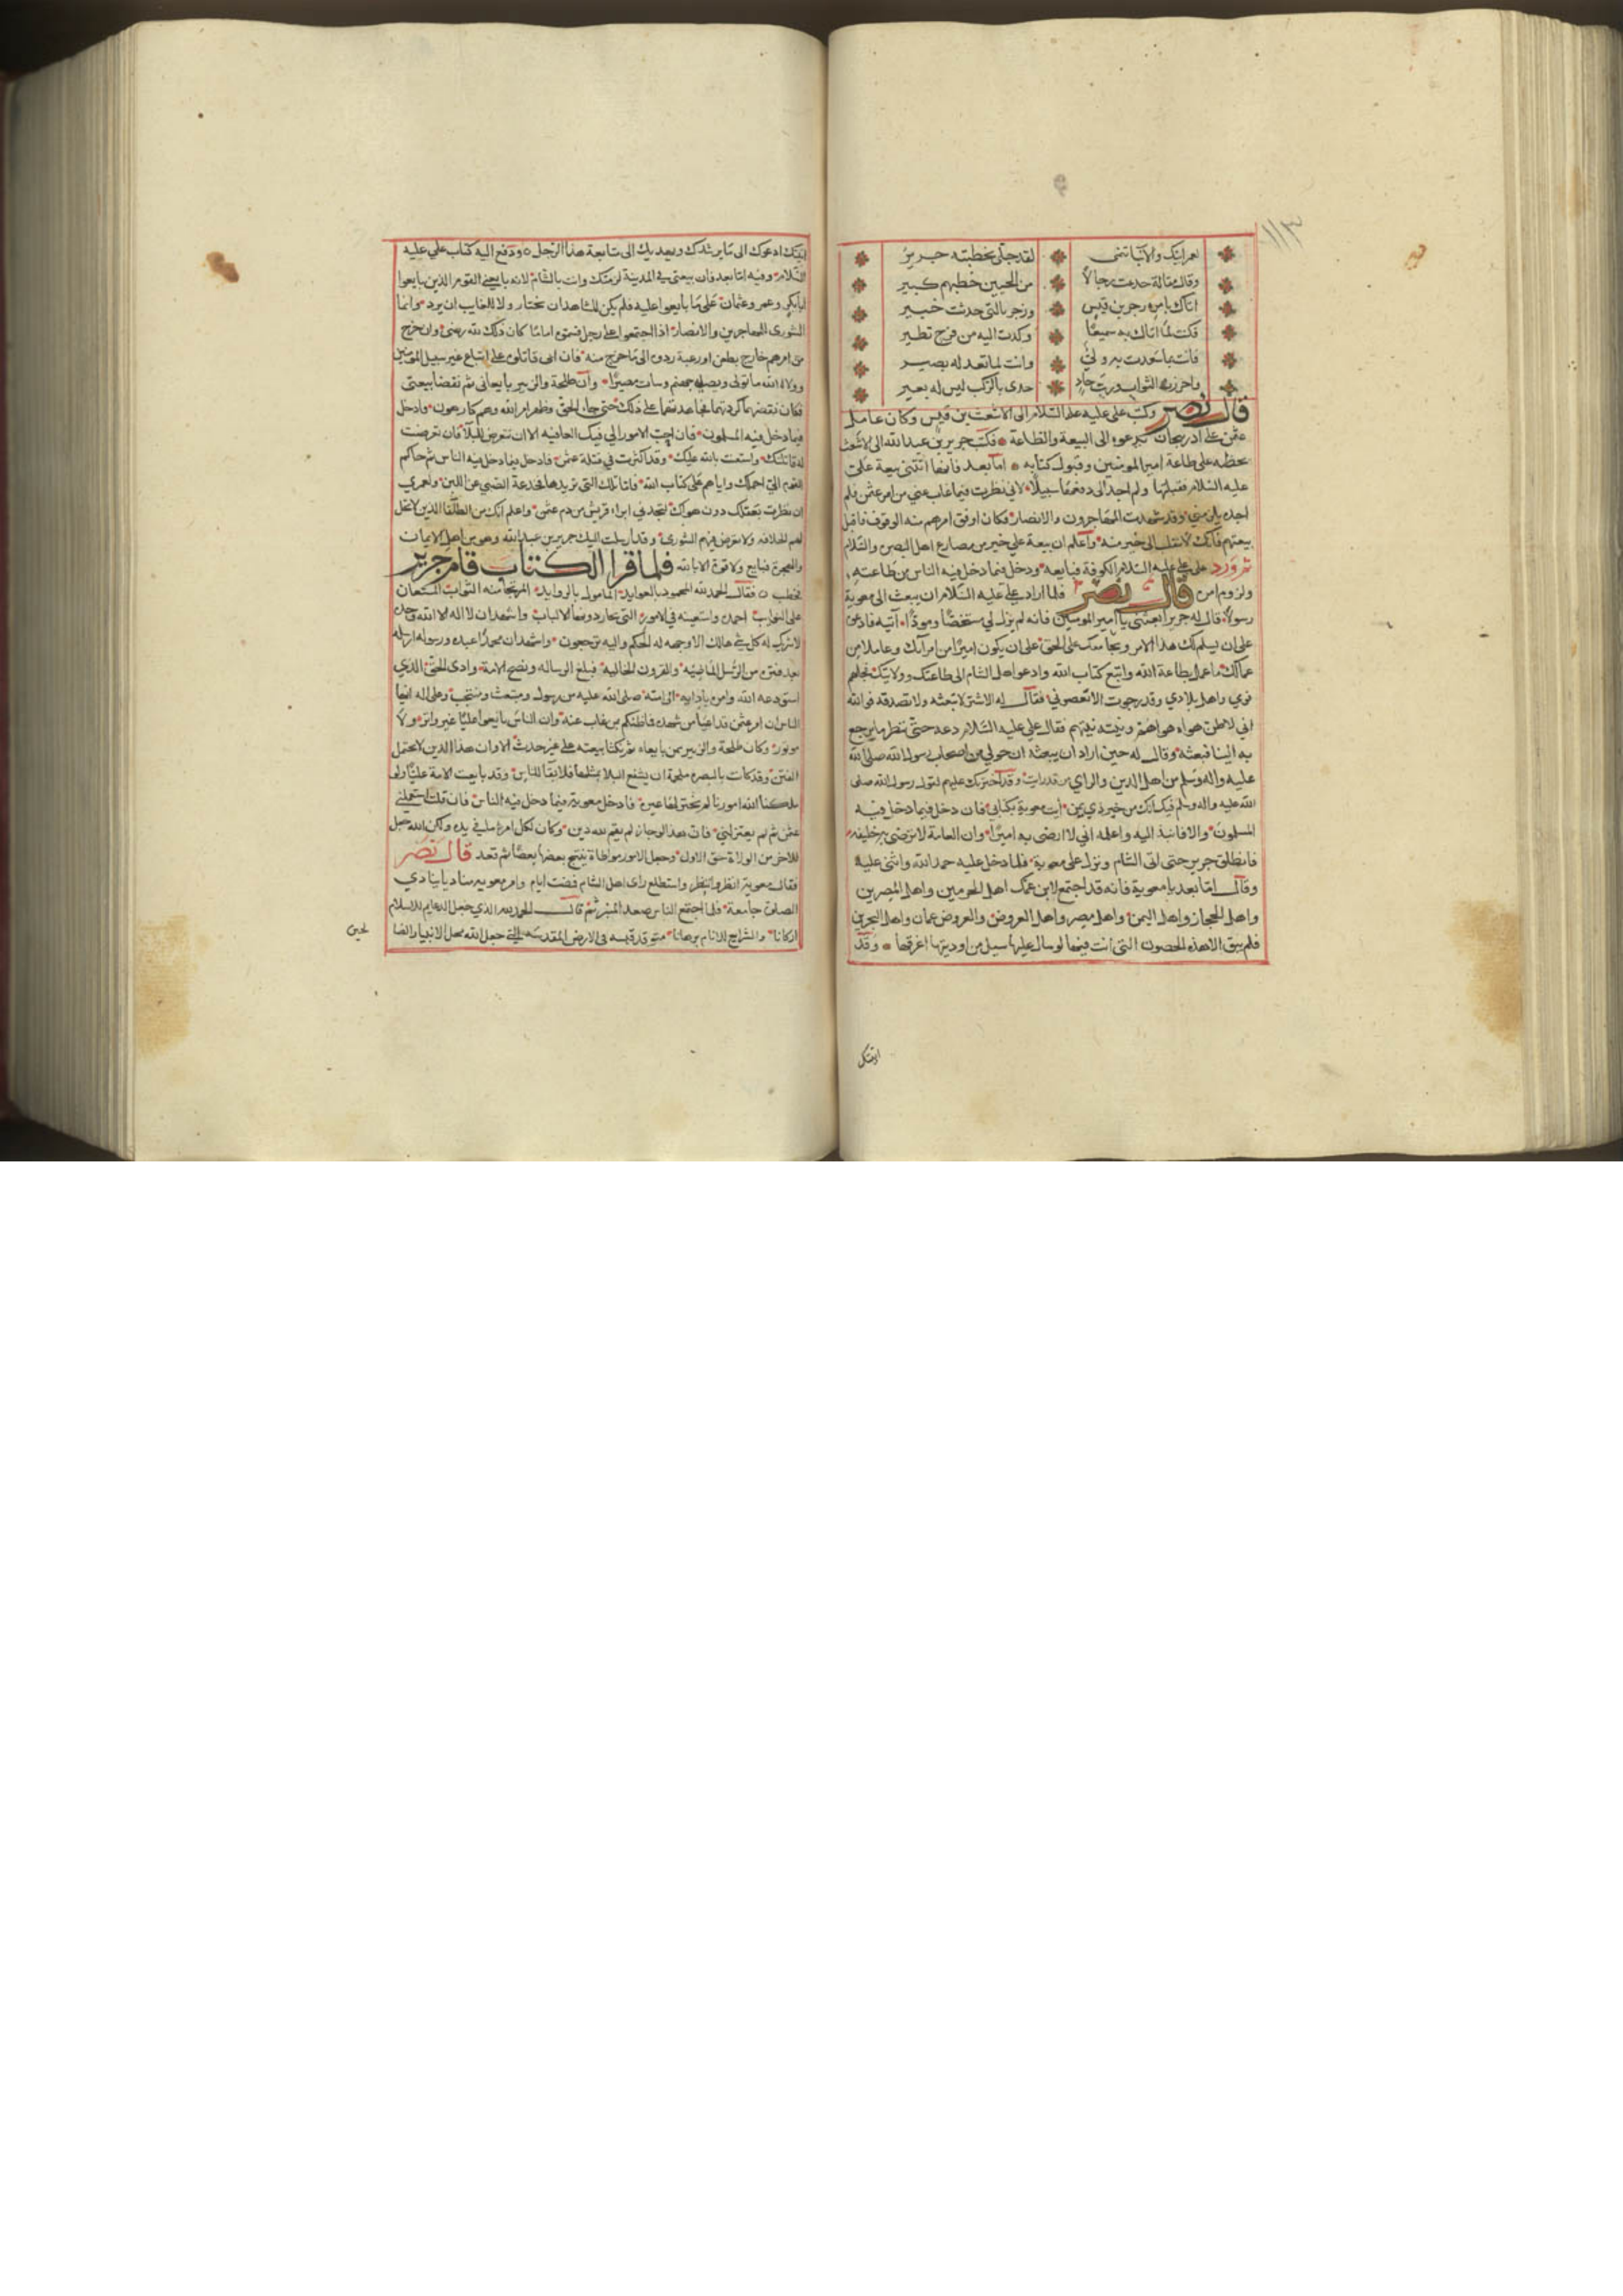 ١١٣
لعمر ابيك والانبا تنمى لقد جلى بخطبته جرير
وقال مقالة جدعت رجالا من الحيين خطبهم كبير
اتاك بامره زجر بن قيس وزجر بالتي حدثت خبير
فكنت لما اتاك به سميعا وكدت اليه من فرح تطير
فانت بما سعدت به ولي وانت لما تعد له بصير
واحرزت الثواب ورب حاد حدى بالركب ليس له بعير
قال نصر وكتب علي عليه السلام الى الاشعث بن قيس وكان عامل
عثمن على اذربيجان يدعوه الى البيعة والطاعة وكتب جرير بن عبد الله الى الاشعث
يحظه على طاعة امير المومنين وقبول كتابه اما بعد فانها اتتني بيعة علي
عليه السلام فقبلتها ولم اجد الى دفعها سبيلا لاني نظرت فيما غاب عني من امر عثمن فلم
اجده يلزمني وقد شهدت المهاجرون والانصار فكان اوفق امرهم منه الوقوف فاقبل
بيعتهم فانك لا تنقلب الى خير منه واعلم ان بيعة علي خير من مصارع اهل البصره والسلام
ثم ورد على علي عليه السلام الكوفة فبايعه ودخل فيما دخل فيه الناس من طاعته
ولزوم امره قال نصر فلما اراد علي عليه السلام ان يبعث الى معوية
رسولا قال له جرير ابعثني يا امير المومنين فانه لم يزل لي مستخصا ومودا آتيه فادعوه
على ان يسلم لك هذا الامر ويجامعك على الحق على ان يكون اميرا من امرآئك وعاملا من
عمالك ما عمل بطاعة الله واتبع كتاب الله وادعو اهل الشام الى طاعتك وولايتك فجلهم
قومي واهل بلادي وقد رجوت الا تعصوني فقال له الاشتر لا تبعثه ولا تصدقه فوالله
اني لاظن هواه هواهم ونيته نيتهم فقال علي عليه السلام دعه حتى ننظر ما يرجع
به الينا فبعثه وقال له حين اراد ان يبعثه ان حولي من اصحاب رسول الله صلى الله
عليه واله وسلم من اهل الدين والراي من قد رايت وقد اخترتك عليهم لقول رسول الله صلى
الله عليه واله وسلم فيك انك من خير ذي يمن ايت معوية بكتابي فان دخل فيما دخل فيه
المسلمون والا فانبذ اليه واعلمه اني لا ارضى به اميرا وان العامة لا ترضى به خليفه
فانطلق جرير حتى اتى الشام ونزل على معوية فلما دخل عليه حمد الله واثنى عليه
وقال اما بعد يا معوية فانه قد اجتمع لابن عمك اهل الحرمين واهل المصرين
واهل الحجاز واهل اليمن واهل مصر واهل العروض والعروض عمان واهل البحرين
فلم يبق الا هذه الحصون التي انت فيها لو سال عليها سيل من اوديتها اغرقها وقد
اتيتك
اتيتك ادعوك الى ما يرشدك ويهديك الى متابعة هذا الرجل ودفع اليه كتاب علي عليه
السلام وفيه اما بعد فان بيعتي في المدينة لزمتك وانت بالشام لانه بايعني القوم الذين بايعوا
ابا بكر وعمر وعثمان على ما بايعوا عليه فلم يكن للشاهد ان يختار ولا للغايب ان يرد وانما
الشورى للمهاجرين والانصار اذا اجتمعوا على رجل فسموه اماما كان ذلك لله رضى وان خرج
من امرهم خارج بطعن او رغبة ردوه الى ما خرج منه فان ابى قاتلوه على اتباع غير سبيل المومنين
وولاه الله ما تولى ويصله جهنم وسات مصيرا وان طلحة والزبير بايعاني ثم نقضا بيعتي
فكان نقضهما كردتهما فجاهدتهما على ذلك حتى جاء الحق وظهر امر الله وهم كارهون وادخل
فيما دخل فيه المسلمون فان احب الامور الي فيك العافيه الا ان تتعرض للبلآ فان تعرضت
له قاتلتك واستعنت بالله عليك وقد اكثرت في قتلة عثمن فادخل فيما دخل فيه الناس ثم حاكم
القوم الي احملك واياهم على كتاب الله فاما تلك التي تريدها فخدعة الصبي عن اللبن ولعمري
ان نظرت بعقلك دون هواك لتجدني ابراء قريش من دم عثمن واعلم انك من الطلقا الذين لا تحل
لهم الخلافه ولا تعرض فيهم الشورى وقد ارسلت اليك جرير بن عبد الله وهو من اهل الايمان
والهجرة فبايع ولا قوة الا بالله فلما قرا الكتاب قام جرير
فخطب فقال الحمد لله المحمود بالعوايد المامول بالزوايد المرتجا منه الثواب المستعان
على النوايب احمده واستعينه في الامور التي تحار دونها الالباب واشهد ان لا اله الا الله وحده
لا شريك له كل شي هالك الا وجهه له الحكم واليه ترجعون واشهد ان محمدا عبده ورسوله ارسله
بعد فتره من الرسل الماضيه والقرون الخاليه فبلغ الرساله ونصح الامة وادى الحق الذي
استودعه الله وامره بادايه الى امته صلى الله عليه من رسول ومبتعث ومنتجب وعلى اله ايها
الناس ان امر عثمن قد اعيا من شهده فما ظنكم بمن غاب عنه وان الناس بايعوا عليا غير واتر ولا
موتور وكان طلحة والزبير ممن بايعاه ثم نكثا بيعته على غير حدث الا وان هذا الدين لا يحتمل
الفتن وقد كانت بالبصره ملحمة ان يشفع البلا بمثلها فلا بقا للناس وقد بايعت الامة عليا ولو
ملكنا الله امورنا لم نختر لها غيره فادخل معوية فيما دخل فيه الناس فان قلت استعملني
عثمن ثم لم يعزلني فان هذا لو جاز لم يقم لله دين وكان لكل امرء ما في يده ولكن الله جعل
للاخر من الولاة حق الاول وجعل الامور موطاة ينتج بعضها بعضا ثم قعد قال نصر
فقال معوية انظر وانتظر واستطلع راى اهل الشام فمضت ايام وامر معويه مناديا ينادي
الصلوة جامعة فلما اجتمع الناس صعد المنبر ثم قال الحمد لله الذي جعل الدعايم للاسلام
اركانا والشرايع للانام برهانا يتوقد قبسه في الارض المقدسة التي جعل الله محل الانبيا والصا
لحين